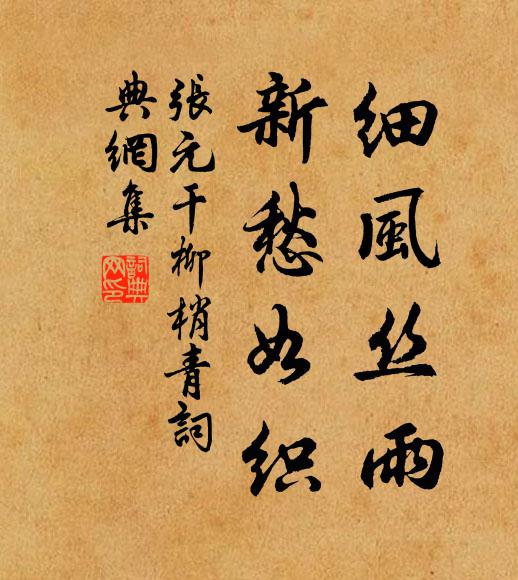 細風丝雨
新愁如织
張元干柳梢青詞
典網集
詞典网印